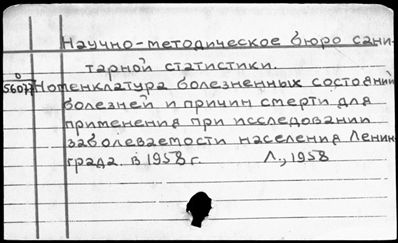 Научно-методическое бюро сани-
тарной статистики.
О
56077 Номенклатура болезненных состояний
болезней и причин смерти для
применения при исследовании
заболеваемости населения Ленин-
града в 1958 г. Л., 1958